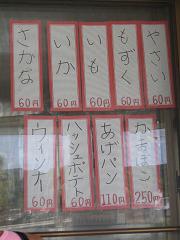 やさい
60円
もずく
60円
いも
60円
いか
60円
さかな
60円
かまぼこ
250円
あげパン
110円
ハッシュポテト
60円
ウィンナー
60円